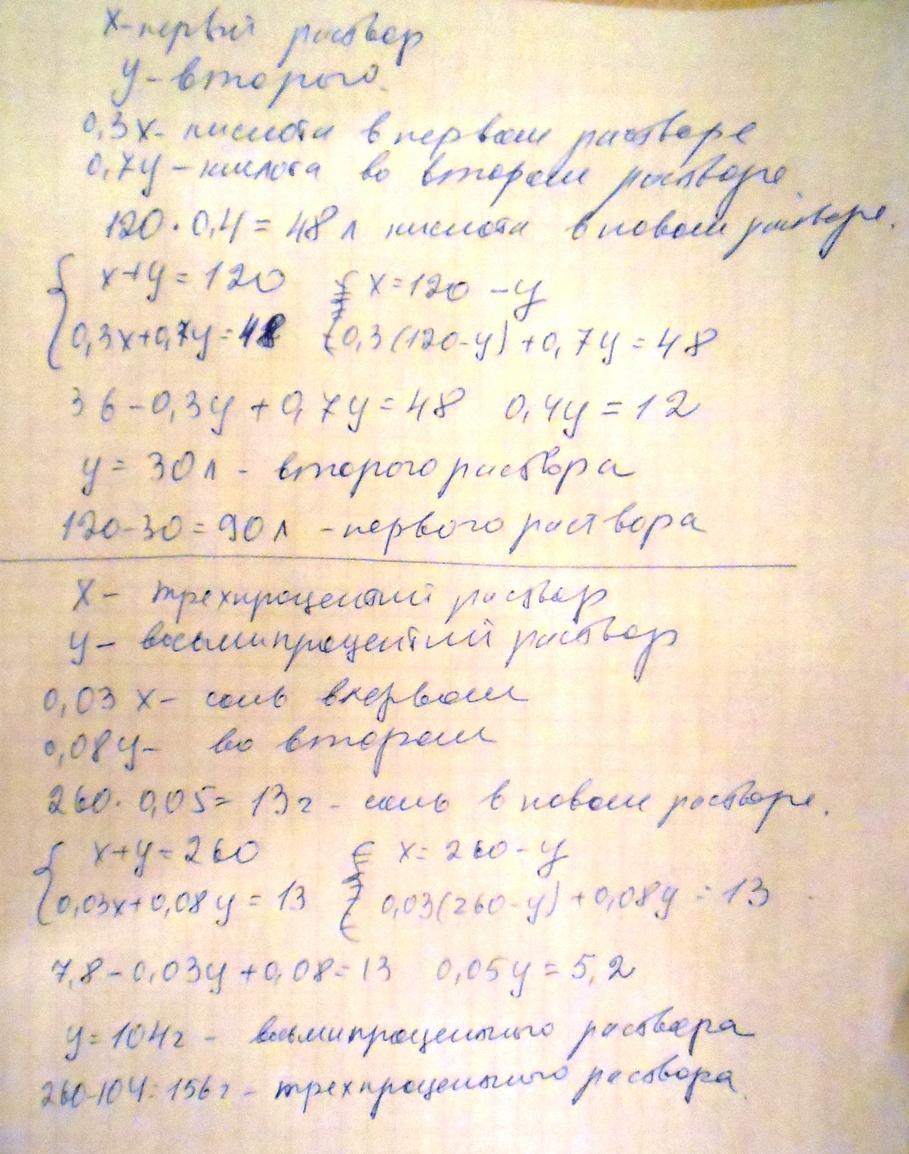 x-первый раствор
y-второго.
0,3x- кислота в первом растворе
0,7y-кислота во втором растворе.
120·0,4=48 л кислота в новом растворе.
{ x+y=120 { x=120-y
0,3x+0,7y=48 0,3(120-y)+0,7y=48
36-0,3y+0,7y=48 0,4y=12
y=30л- второго раствора
120-30=90л -первого раствора
x- трехпроцентий раствор
y- восьмипроцентий раствор
0,03x- соль в первом
0,08y- во втором
260·0,05=13г- соль в новом растворе.
{ x+y=260 { x=260-y
0,03x+0,08y=13 0,03(260-y)+0,08y=13
7,8-0,03y+0,08=13 0,05y=5,2
y=104г- восьмипроцентного раствора
260-104=156г-трехпроцентного раствора.